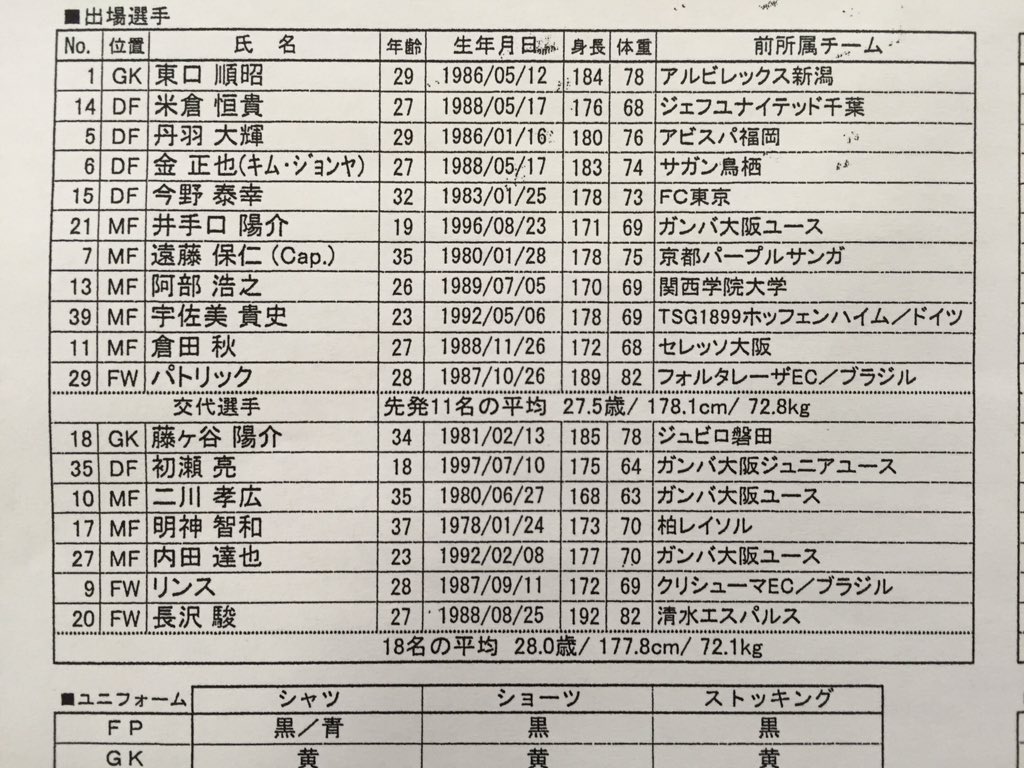 ■出場選手
No. 位置 氏 名 年齢 生年月日 身長 体重 前所属チーム
1 GK 東口 順昭 29 1986/05/12 184 78 アルビレックス新潟
14 DF 米倉 恒貴 27 1988/05/17 176 68 ジェフユナイテッド千葉
5 DF 丹羽 大輝 29 1986/01/16 180 76 アビスパ福岡
6 DF 金 正也(キム・ジョンヤ) 27 1988/05/17 183 74 サガン鳥栖
15 DF 今野 泰幸 32 1983/01/25 178 73 FC東京
21 MF 井手口 陽介 19 1996/08/23 171 69 ガンバ大阪ユース
7 MF 遠藤 保仁 (Cap.) 35 1980/01/28 178 75 京都パープルサンガ
13 MF 阿部 浩之 26 1989/07/05 170 69 関西学院大学
39 MF 宇佐美 貴史 23 1992/05/06 178 69 TSG1899ホッフェンハイム／ドイツ
11 MF 倉田 秋 27 1988/11/26 172 68 セレッソ大阪
29 FW パトリック 28 1987/10/26 189 82 フォルタレーザEC／ブラジル
交代選手 先発11名の平均 27.5歳/ 178.1cm/ 72.8kg
18 GK 藤ヶ谷 陽介 34 1981/02/13 185 78 ジュビロ磐田
35 DF 初瀬 亮 18 1997/07/10 175 64 ガンバ大阪ジュニアユース
10 MF 二川 孝広 35 1980/06/27 168 63 ガンバ大阪ユース
17 MF 明神 智和 37 1978/01/24 173 70 柏レイソル
27 MF 内田 達也 23 1992/02/08 177 70 ガンバ大阪ユース
9 FW リンス 28 1987/09/11 172 69 クリシューマEC／ブラジル
20 FW 長沢 駿 27 1988/08/25 192 82 清水エスパルス
18名の平均 28.0歳/ 177.8cm/ 72.1kg
■ユニフォーム シャツ ショーツ ストッキング
FP 黒／青 黒 黒
GK 黄 黄 黄